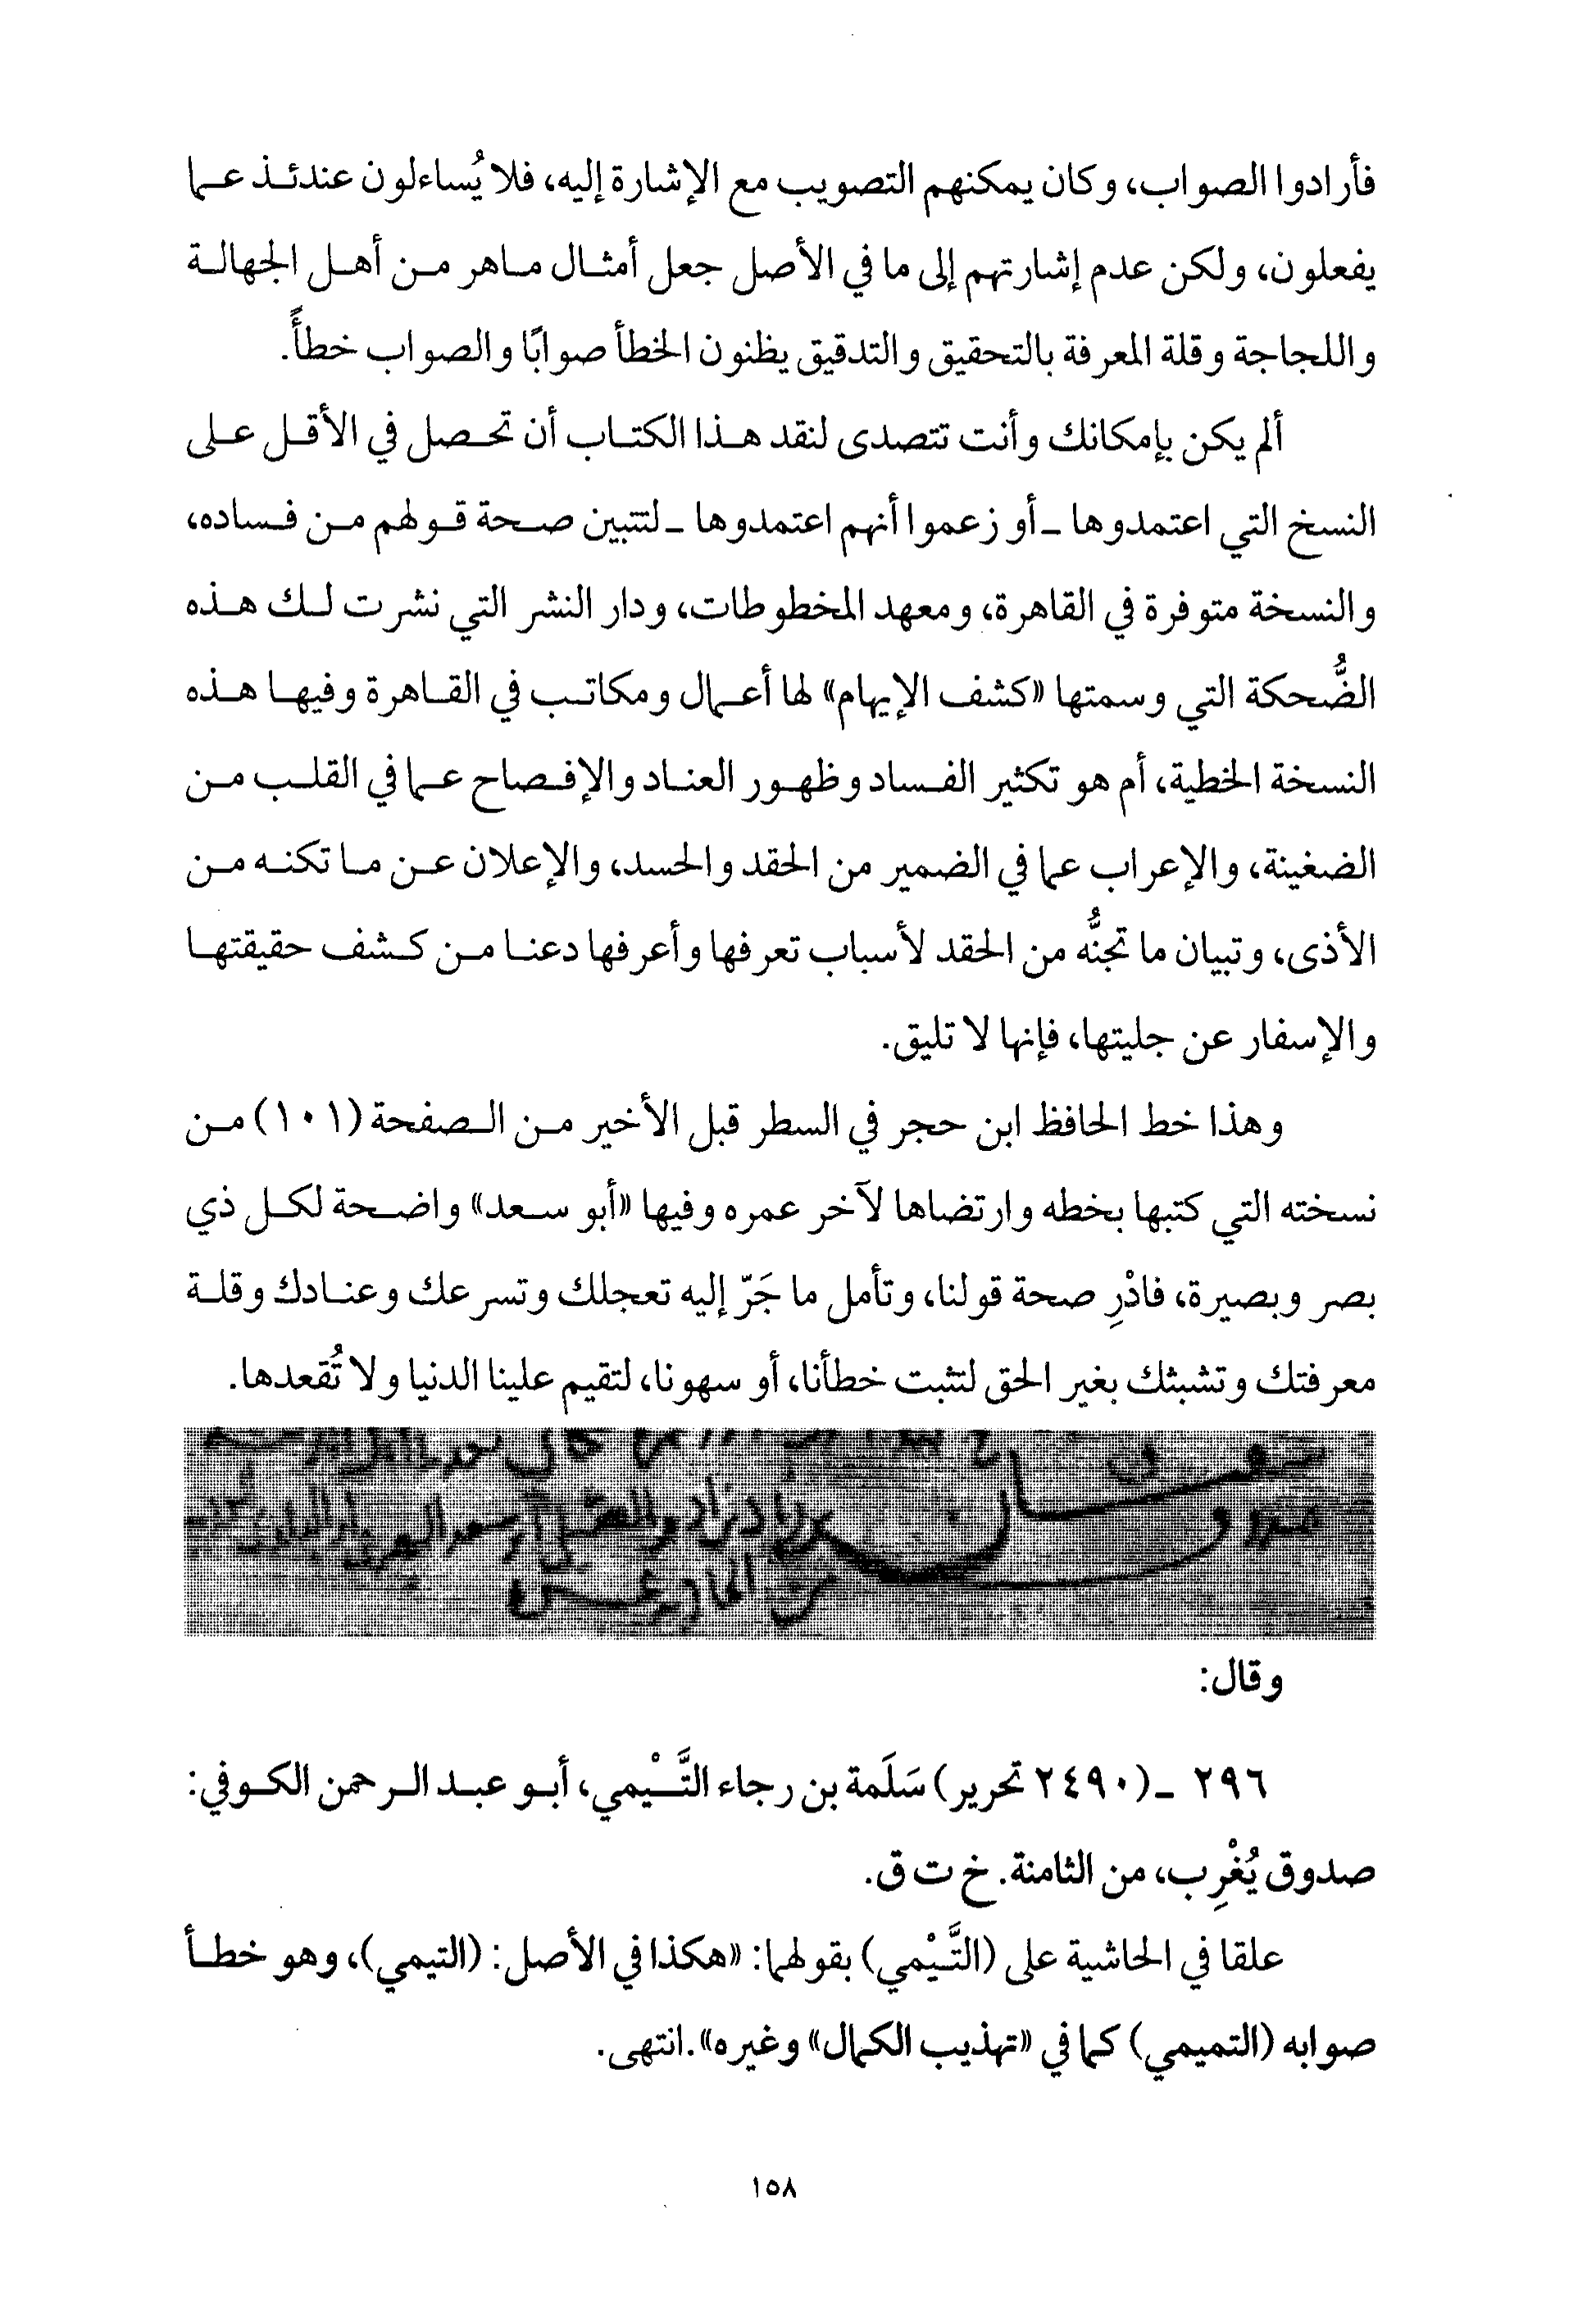 فأرادوا الصواب، وكان يمكنهم التصويب مع الإشارة إليه، فلا يُساءلون عندئذ عما
يفعلون، ولكن عدم إشارتهم إلى ما في الأصل جعل أمثال ماهر من أهل الجهالة
واللجاجة وقلة المعرفة بالتحقيق والتدقيق يظنون الخطأ صوابًا والصواب خطأً.
ألم يكن بإمكانك وأنت تتصدى لنقد هذا الكتاب أن تحصل في الأقل على
النسخ التي اعتمدوها ـ أو زعموا أنهم اعتمدوها ـ لتتبين صحة قولهم من فساده،
والنسخة متوفرة في القاهرة، ومعهد المخطوطات، ودار النشر التي نشرت لك هذه
الضُّحكة التي وسمتها «كشف الإيهام» لها أعمال ومكاتب في القاهرة وفيها هذه
النسخة الخطية، أم هو تكثير الفساد وظهور العناد والإفصاح عما في القلب من
الضغينة، والإعراب عما في الضمير من الحقد والحسد، والإعلان عن ما تكنه من
الأذى، وتبيان ما تجنُّه من الحقد لأسباب تعرفها وأعرفها دعنا من كشف حقيقتها
والإسفار عن جليتها، فإنها لا تليق.
وهذا خط الحافظ ابن حجر في السطر قبل الأخير من الصفحة (١٠١) من
نسخته التي كتبها بخطه وارتضاها لآخر عمره وفيها «أبو سعد» واضحة لكل ذي
بصر وبصيرة، فادْرِ صحة قولنا، وتأمل ما جَرّ إليه تعجلك وتسرعك وعنادك وقلة
معرفتك وتشبثك بغير الحق لتثبت خطأنا، أو سهونا، لتقيم علينا الدنيا ولا تُقعدها.
وقال:
٢٩٦ ـ (٢٤٩٠ تحرير) سَلَمة بن رجاء التَّيْمي، أبو عبد الرحمن الكوفي:
صدوق يُغْرِب، من الثامنة. خ ت ق.
علقا في الحاشية على (التَّيْمي) بقولهما: «هكذا في الأصل: (التيمي)، وهو خطأ
صوابه (التميمي) كما في «تهذيب الكمال» وغيره».انتهى.
١٥٨